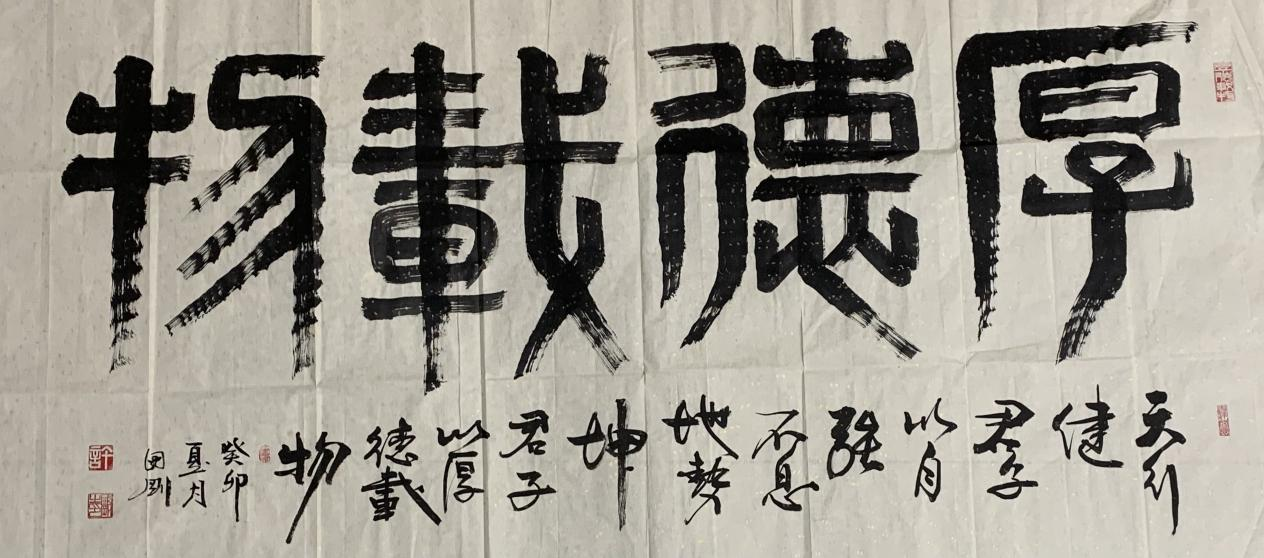 厚德載物
天行
健
君子
以自
強
不息
地勢
坤
君子
以厚
德載
物
癸卯
夏月